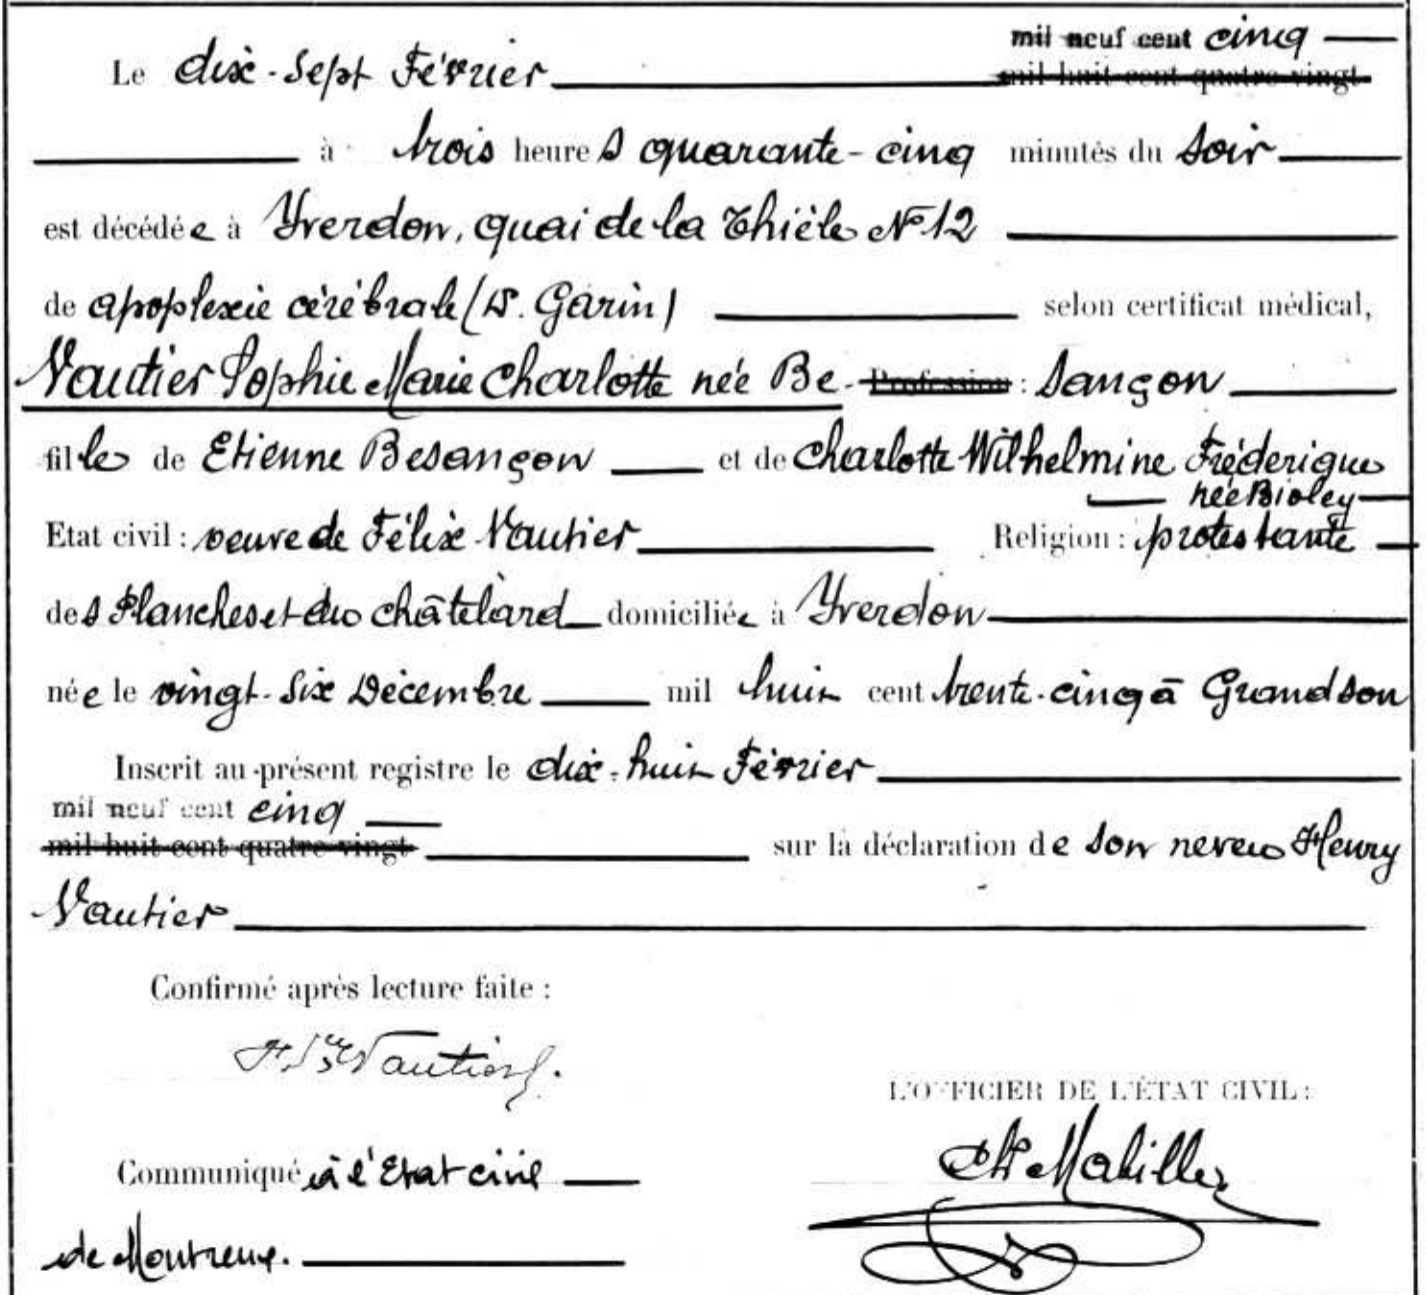 mil neuf cent cinq
Le dix-sept Février mil huit cent quatre-vingt
à trois heures quarante-cinq minutes du soir
est décédée à Yverdon, quai de la Thièle No 12
de apoplexie cérébrale (Dr. Garin) selon certificat médical,
Vautier Sophie Marie Charlotte née Be- Profession : sançon
fille de Etienne Besançon et de Charlotte Wilhelmine Fréderique
née Bioley
Etat civil : veuve de Félix Vautier Religion : protestante
des Planches et du Châtelard domiciliée à Yverdon
née le vingt-six Décembre mil huit cent trente-cinq à Grandson
Inscrit au présent registre le dix-huit Février
mil neuf cent cinq
mil huit cent quatre-vingt sur la déclaration de son neveu Henry
Vautier
Confirmé après lecture faite :
Vautier
L'OFFICIER DE L'ÉTAT CIVIL :
Communiqué à l'Etat civil
de Montreux.